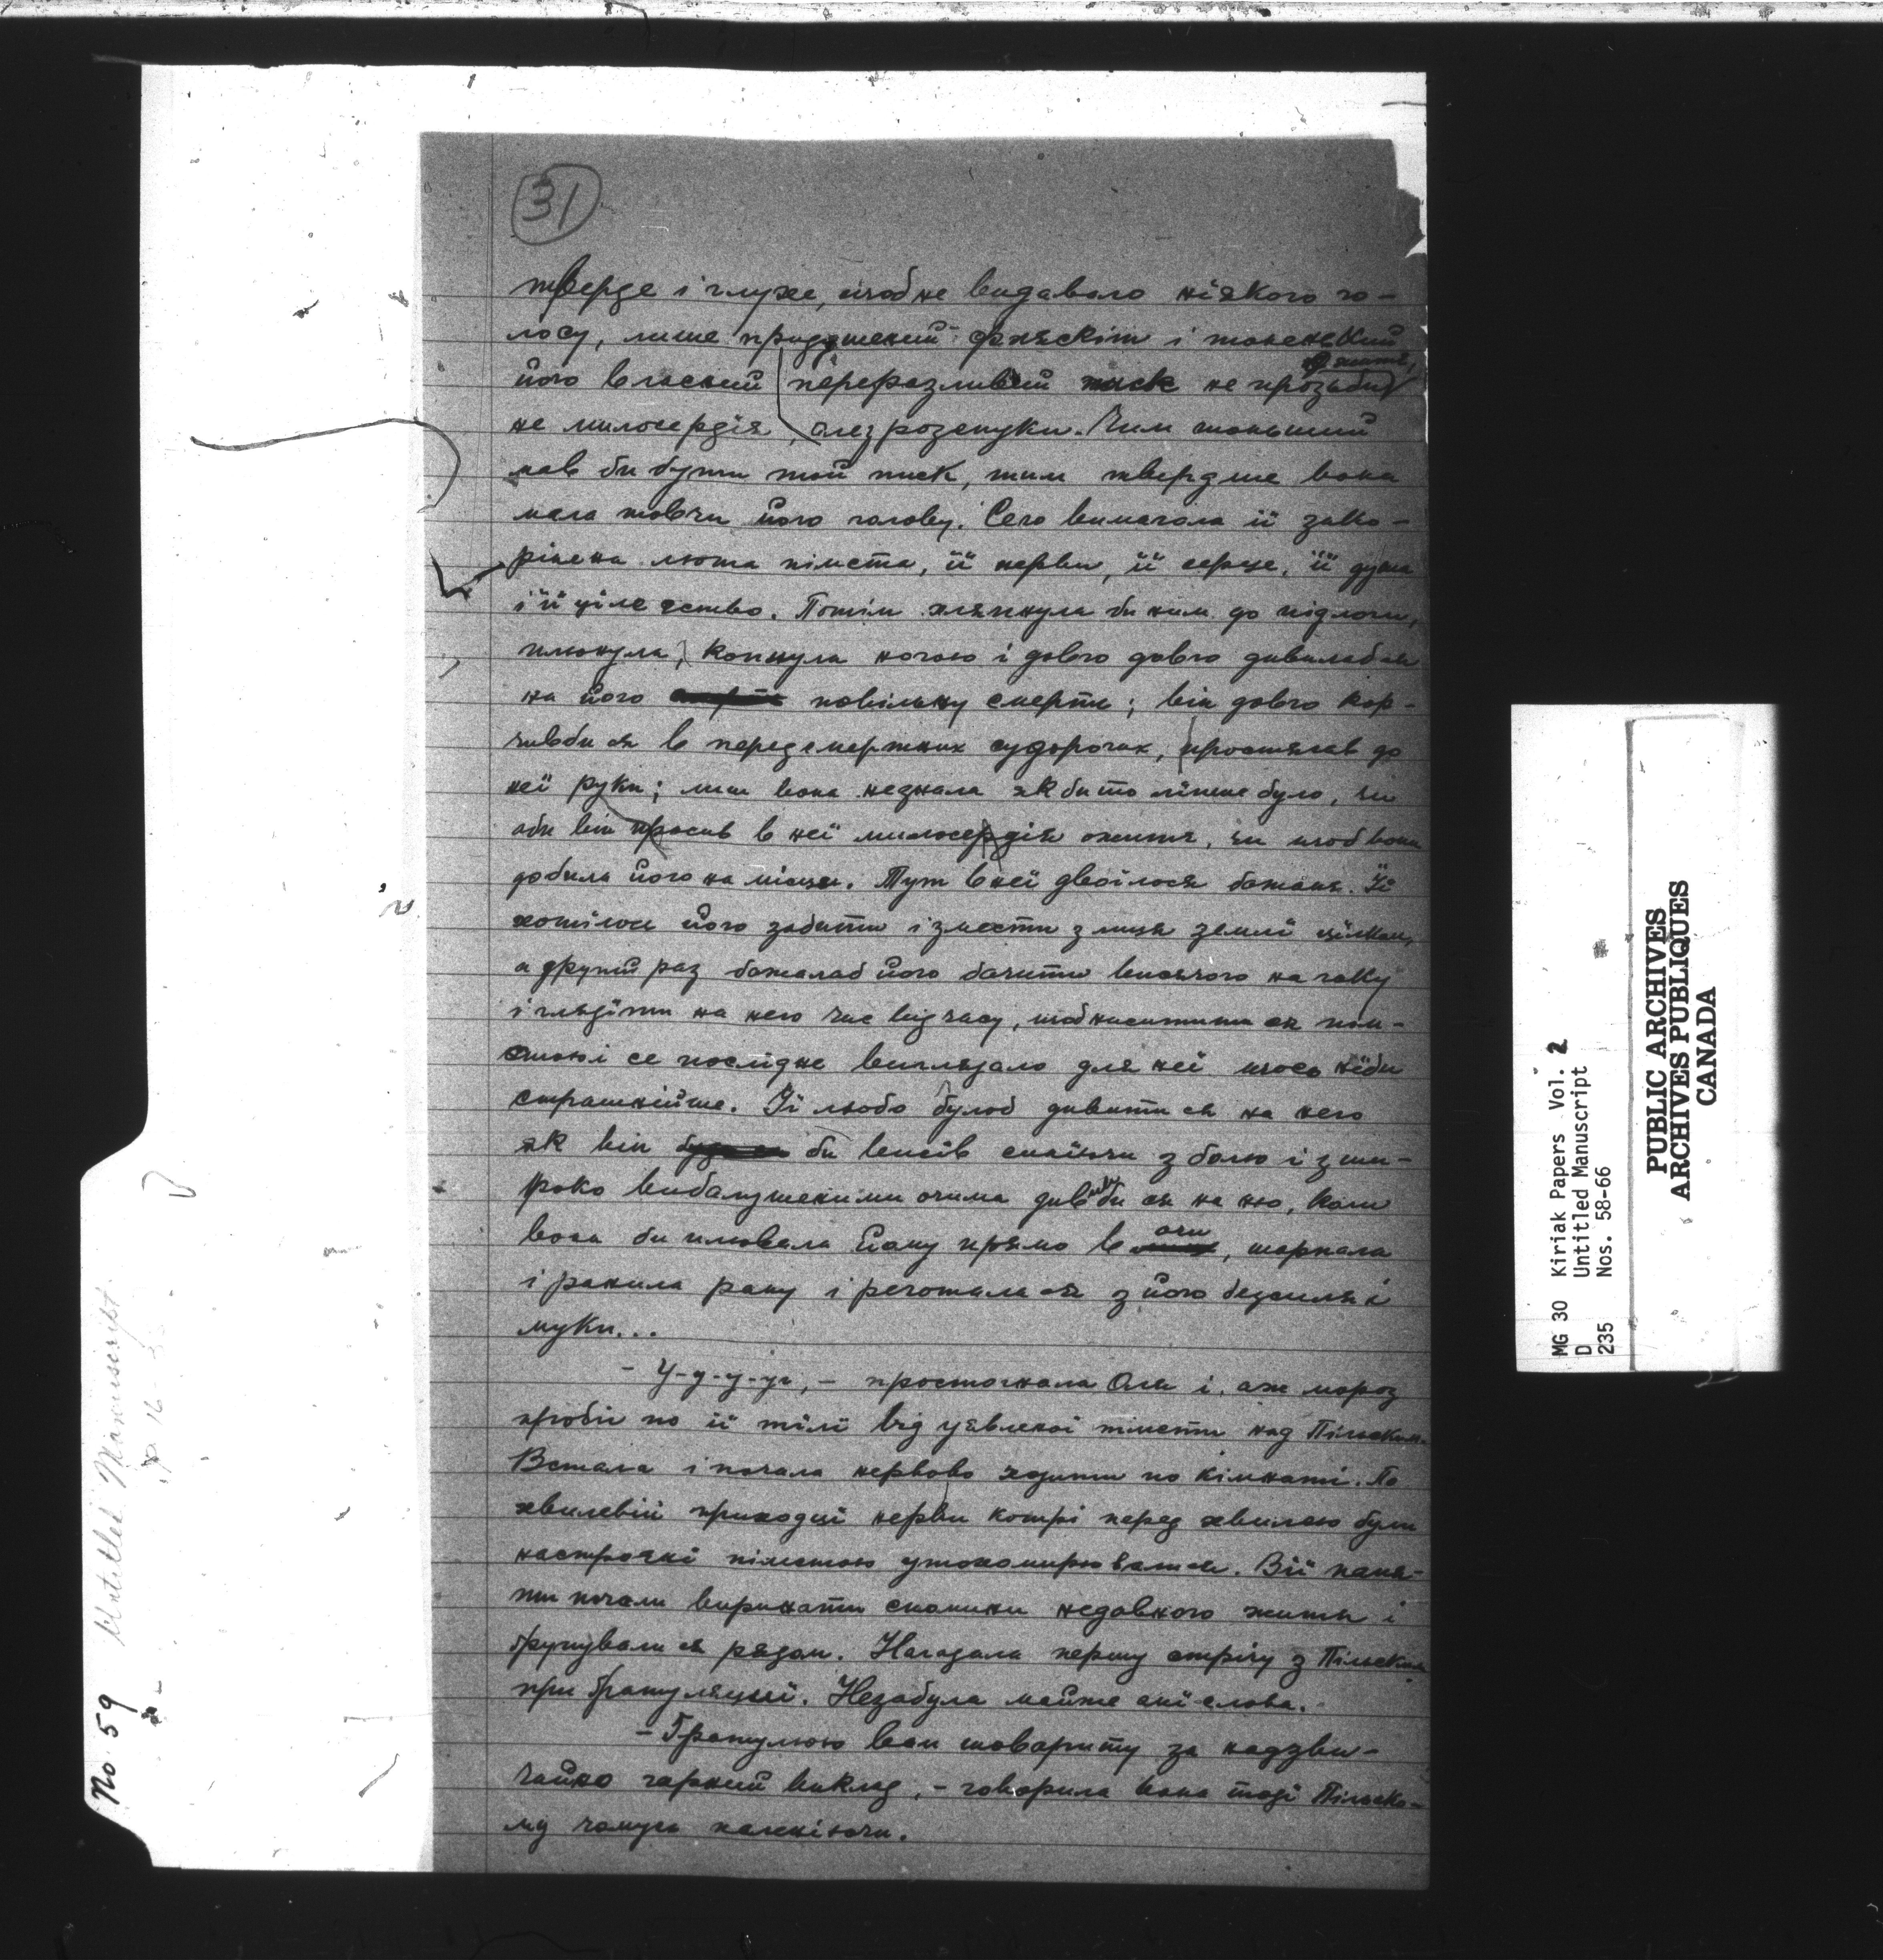 31
тверде і глухе, щоб не видавало ніякого го-
лосу, лише придушений фляскіт і тоненький
його власний переразливий писк не прозьби
життя,
не милосердія, але розспуки. Чим тоньший
мав би бути той писк, тим твердше вона
мала товчи його голову. Сего вимагала її зако-
рінена люта пімста, її нерви, її серце, її душа
і її ціле єство. Потім хляпнула би ним до підлоги,
плюнула, копнула ногою і довго довго дивилаб ся
на його повільну смерть; він довго кор-
чивби ся в передсмертних судорогах, простягав до
неї руки; лиш вона незнала як би то ліпше було, чи
аби він просив в неї милосердія життя, чи щоб вона
добила його на місци. Тут в неї двоїлося бажаня. Її
хотілось його забити і змести з лиця землі цілком,
а другий раз бажалаб його бачити висячого на гаку
і глядіти на него час від часу, щоб насититись ся пім-
стою і се послідне виглядало для неї щось ніби
страшнійше. Її любо булоб дивити ся на него
як він би висів скаїючи з болю і з ши-
роко вибалушеними очима дививби ся на ню, коли
вона би плювала йому прямо в очи, шарпала
і ранила рану і реготала ся з його безсиля і
муки...
- У-у-у-ух, - простогнала Оля і аж мороз
пробіг по її тілі від уявленої пімсти над Пільским.
Встала і почала нервово ходити по кімнаті. По
хвилевій проходці нерви котрі перед хвилею були
настроєні пімстою утокомирювалися. В її памя-
ти почали виринати спомини недавного життя і
ґрупували ся рядом. Нагадала першу стрічу з Пільским
при ґратуляциї. Незабула майже ані слова.
- Ґратулюю вам товаришу за надзви-
чайно гарний виклад, - говорила вона тоді Пільско-
му чомусь паленіючи.
No. 59 Untitled Manuscript
p 16
MG 30 Kiriak Papers Vol. 2
D Untitled Manuscript
235 Nos. 58-66
PUBLIC ARCHIVES
ARCHIVES PUBLIQUES
CANADA